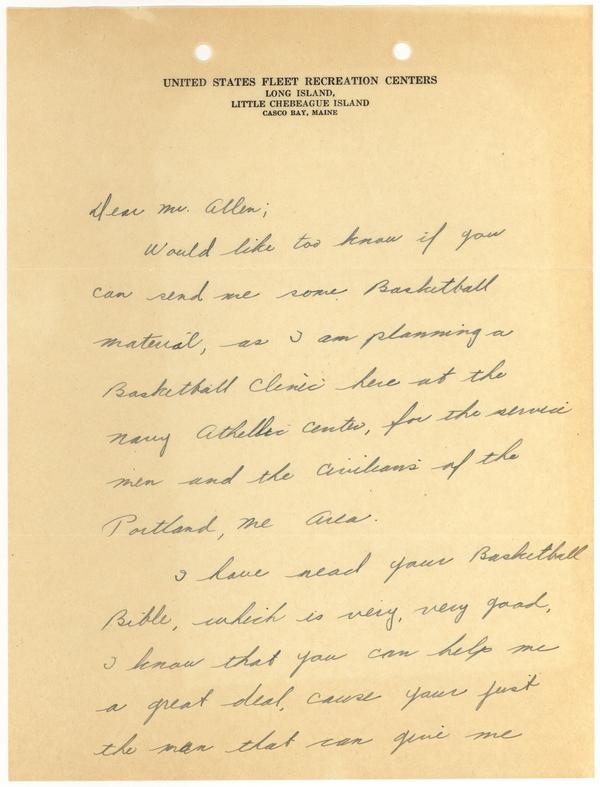 UNITED STATES FLEET RECREATION CENTERS
LONG ISLAND,
LITTLE CHEBEAGUE ISLAND
CASCO BAY, MAINE
Dear Mr. Allen;
Would like too know if you
can send me some Basketball
material, as I am planning a
Basketball Clinic here at the
navy Athelletic Center, for the service
men and the Civilians of the
Portland, Me Area.
I have read your Basketball
Bible, which is very, very good,
I know that you can help me
a great deal, cause your just
the man that can give me